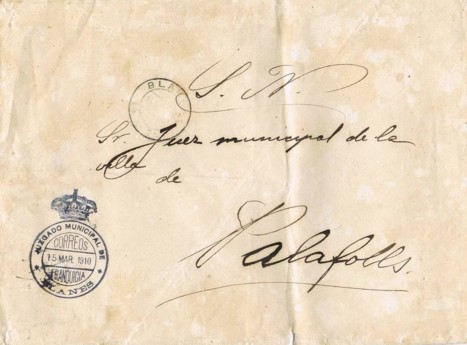 S. N.
BLA
Sr. Juez municipal de la
villa
de
Palafolls.
JUZGADO MUNICIPAL DE
CORREOS
15 MAR. 1910
FRANQUICIA
BLANES